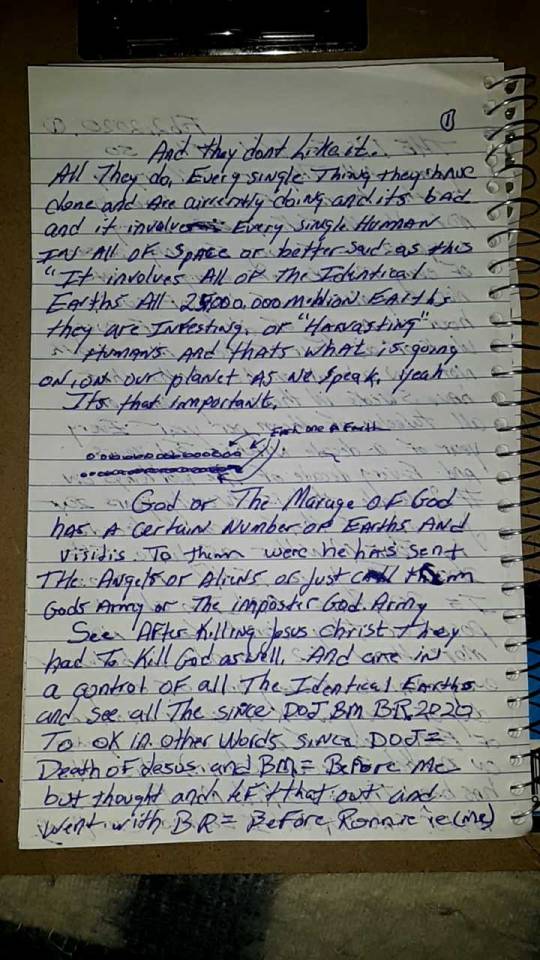 ①
And they dont Like it.
All They do, Every single Thing they have
done and Are currently doing and its bad
and it involves Every single HUMAN
IN All OF SPACE or better said as this
"It involves All of The Identical
EARths All 25,000.000 Earths
they are Investing, or "HARVASTING"
HUMANS And thats what is going
on, on our planet As we speak, yeah
Its that important.
Each one A Earth
God or The Marage OF God
has A certain Number OF EARths And
Visidis To them were he hAs sent
THe Angels or Aliens or just call them
Gods Army or The imposter God Army
See After Killing Jesus christ They
had To Kill God as well, And are in
a control OF all The Identical Earths
and see all The since DOJ BM BR 2020
To OK in other Words since DOJ=
Death of Jesus and BM= Before Me
but thought and left that out and
Went with BR= Before Ronnie ie(me)